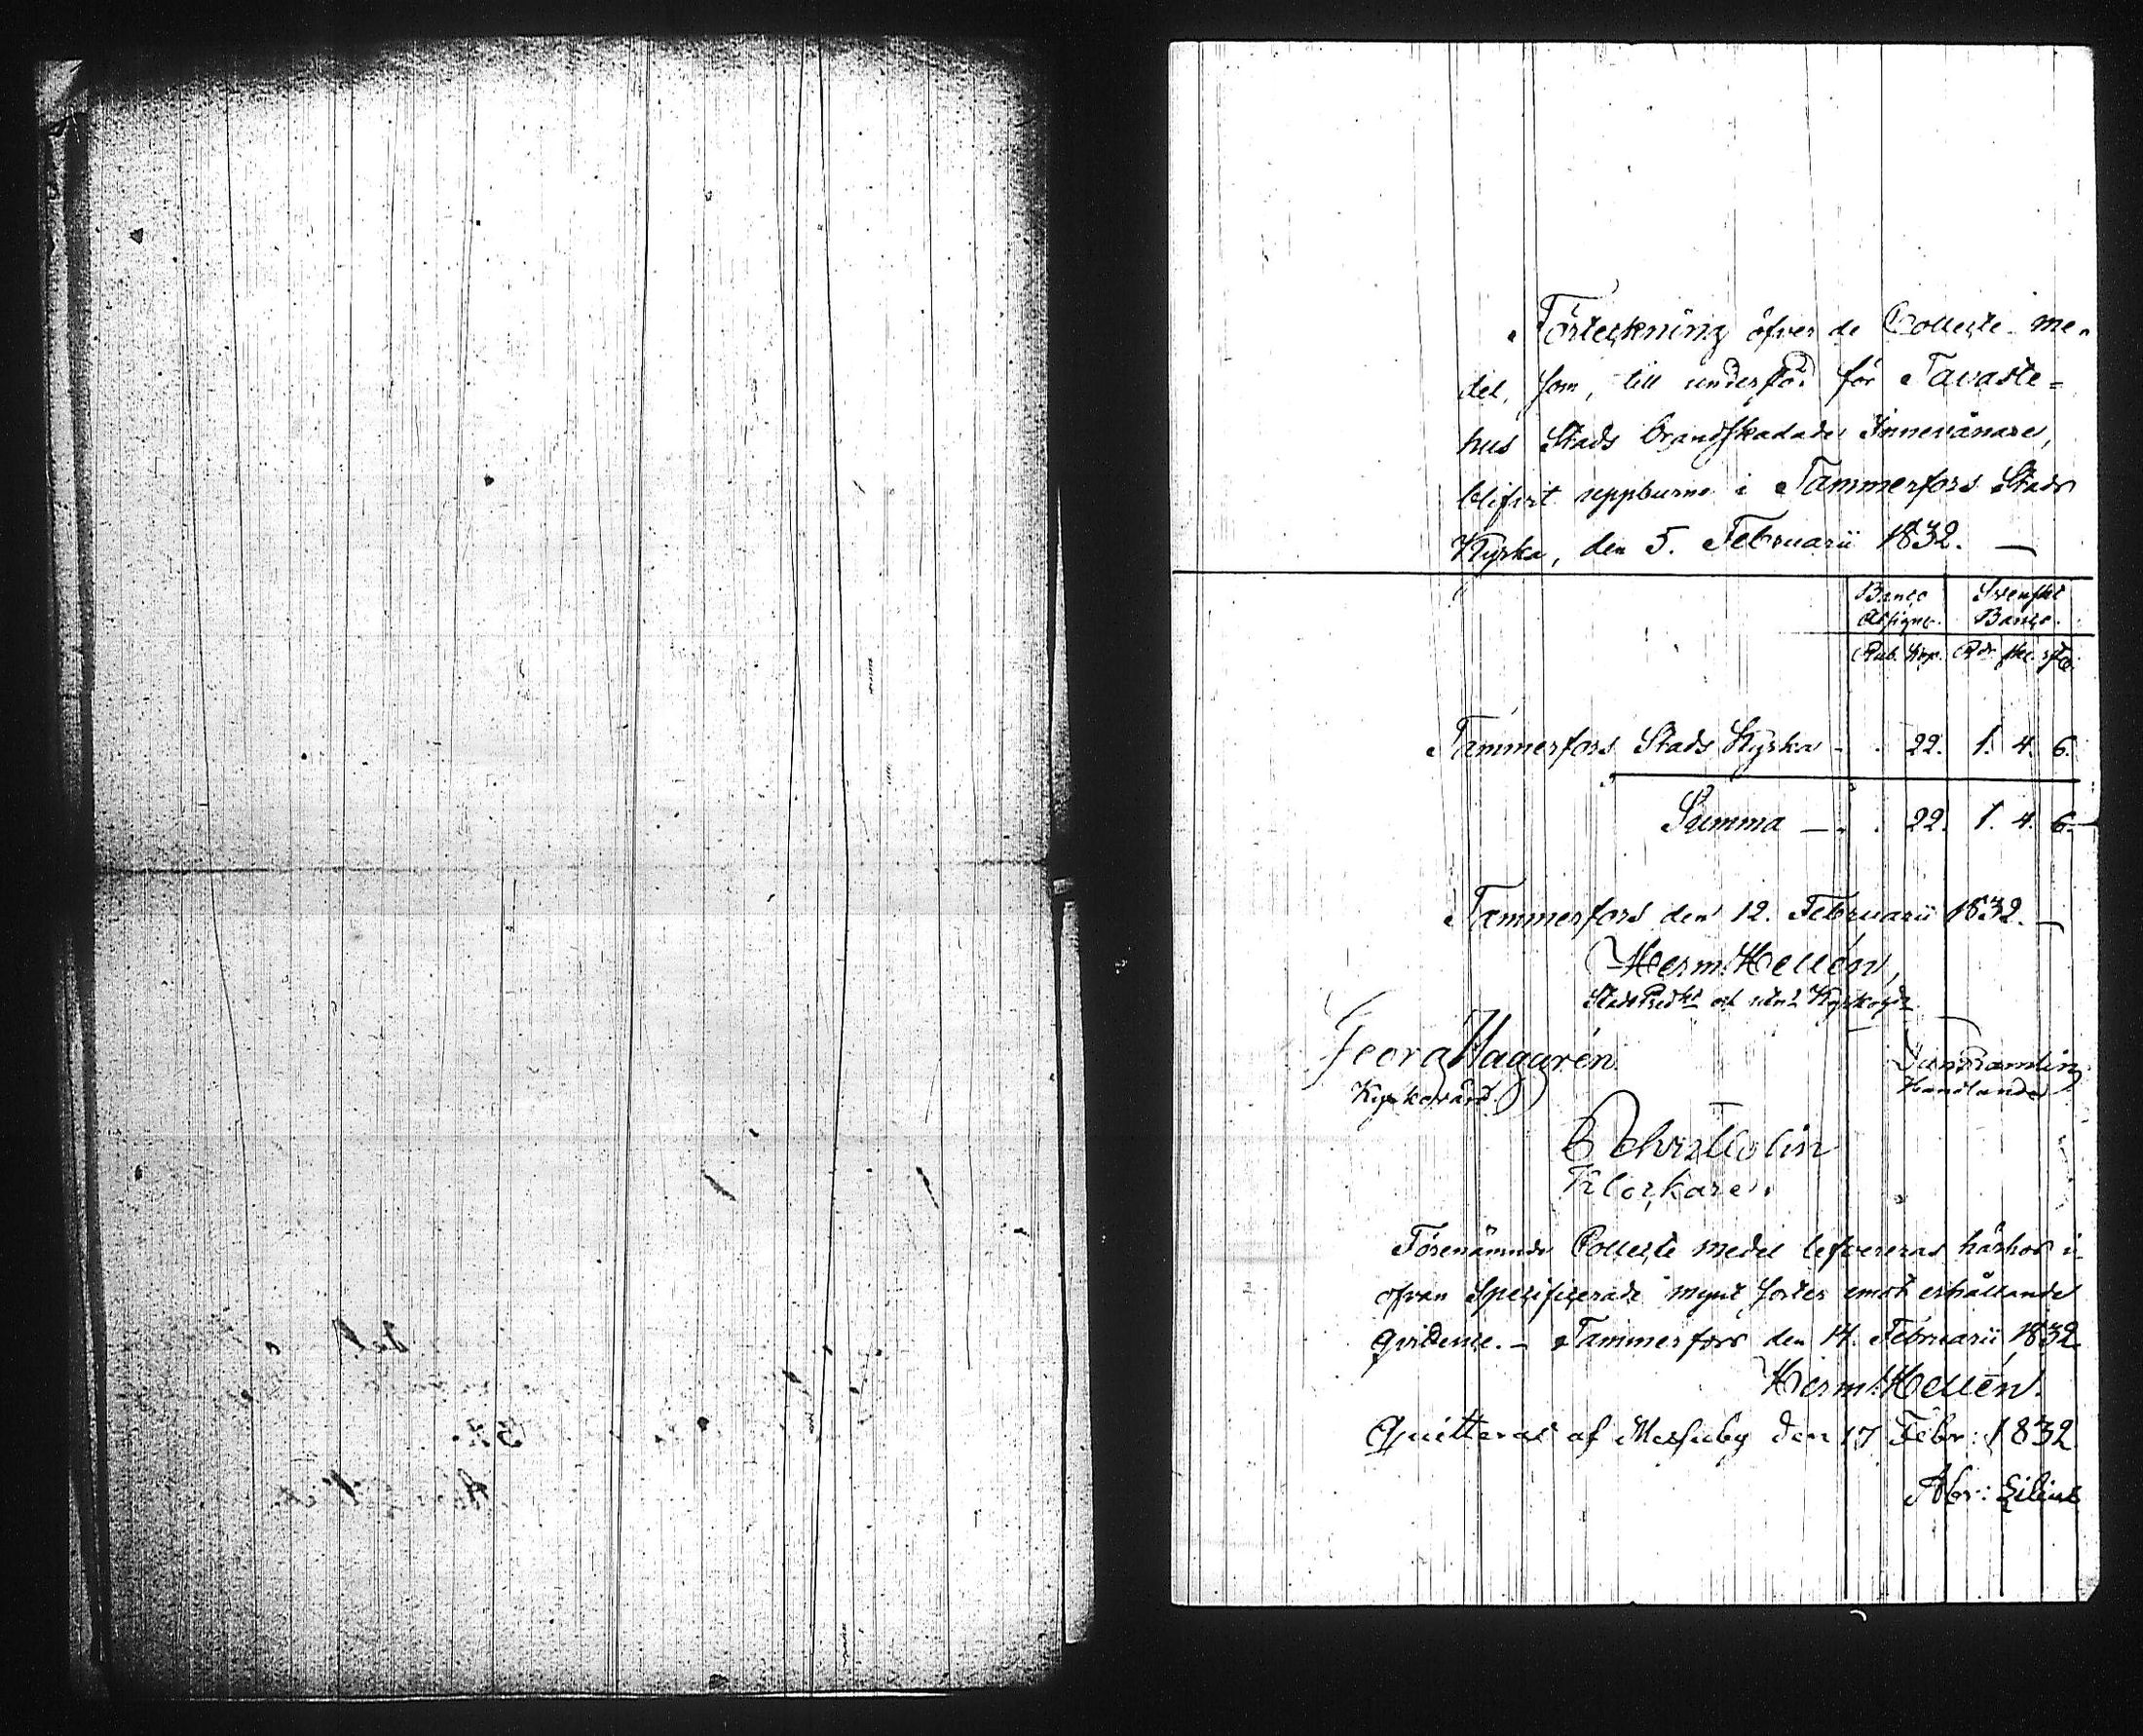 Förteckning öfver de Collecte me-
del, som, till understöd för Tavaste-
hus Stads brandskadade Innevånare,
blifvit uppburne i Tammerfors Stads
Kyrka, den 5. Februarii 1832. —
Banco Svenskt
Assignr. Banco.
Rub. Kop. Rdr. sk. rst.
Tammerfors Stads Kyrka - . 22. 1. 4. 6.
Summa — . . 22. 1. 4. 6. —
Tammerfors den 12. Februarii 1832. —
Herm: Hellén,
Georg Haggrén
Kyrkovärd.
Handlande
Klockare.
Förenämnde Collecte medel lefvereras härhos i
ofvan specificerade mynt sorter emot erhållande
qvidence. — Tammerfors den 14. Februarii 1832
Herm: Hellén.
Quitteras af Messuby den 17 Febr: 1832
Abr: Lilius